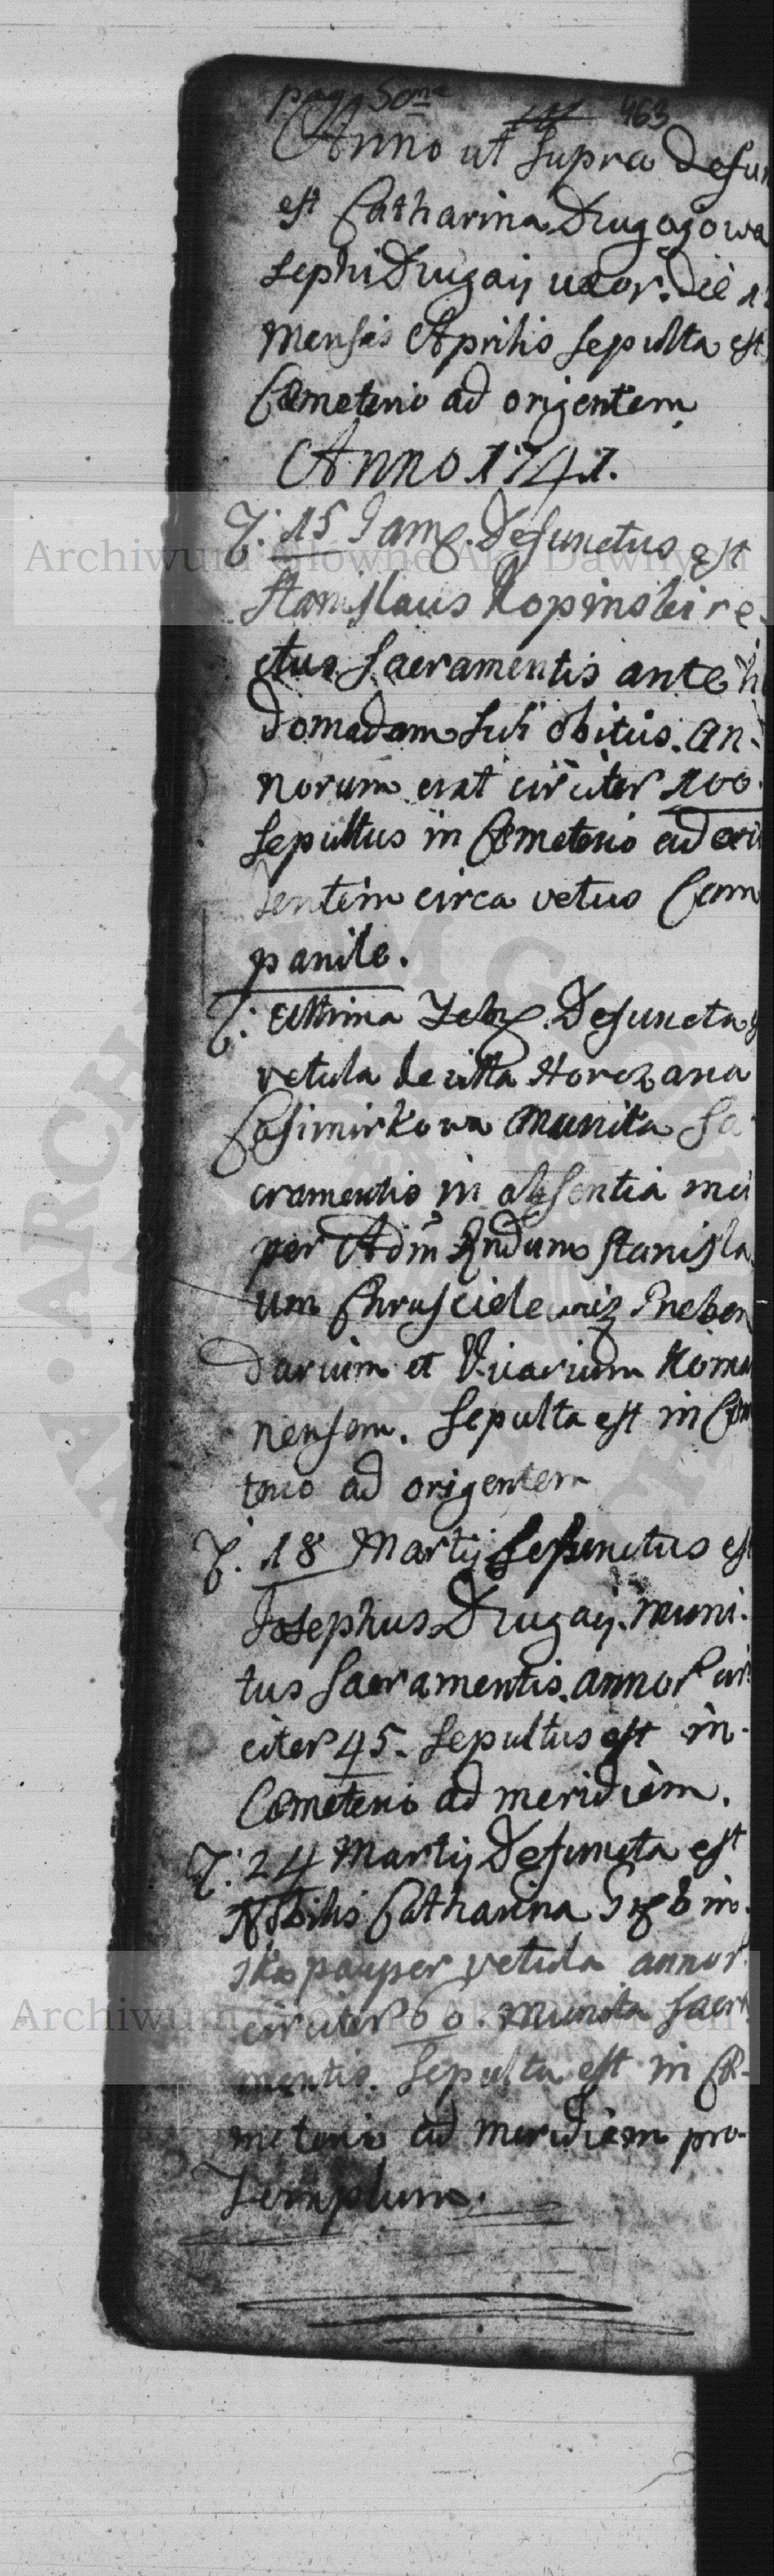 pag 50ma 463
Anno ut supra defun
est Catharina Drugajowa
sephi Drugaij uxor. Die
mensis Aprilis sepulta est
Cemeterio ad origentem
Anno 1741.
D. 15 Janu. Defunctus est
Stanislaus Kopinski re-
ctus Sacramentis ante h
domadam sui obitus. an-
norum erat circiter 100.
Sepultus in Cemeterio ad ori
gentem circa vetus Cam
panile.
D. ultima Febr. Defuncta
vetula de villa Horczana
Casimirkowa munita Sa
cramentis in absentia mei
per Adm Rndum Stanisla
um Chruscielewicz Preben
darium et Vicarium
nensem. Sepulta est in Cem
terio ad origentem
D. 18 Martij Defunctus est
Josephus Drugaij. muni-
tus Sacramentis. annor cir
citer 45. Sepultus est in
Cemeterio ad meridiem.
D. 24 Martij Defuncta est
Nobilis Catharina
ska pauper vetula annor.
circiter 60. munita Sacra
mentis. Sepulta est in Ce-
meterio ad meridiem pro-
Templum.
Archiwum Główne Akt Dawnych
Archiwum Główne Akt Dawnych